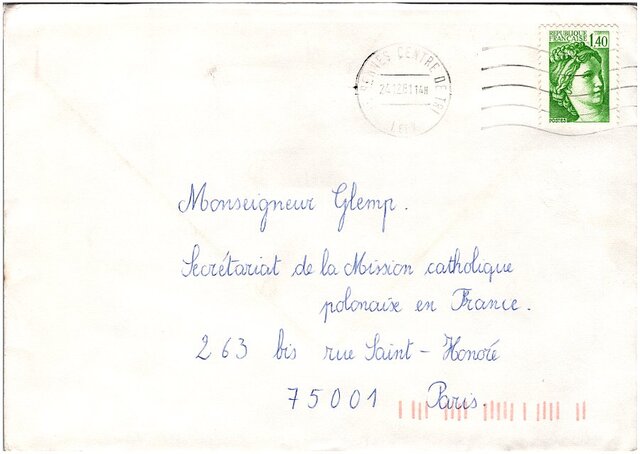 REPUBLIQUE
FRANCAISE
1,40
RENNES CENTRE DE TRI
24.12.81 14H
Monseigneur Glemp.
Secrétariat de la Mission catholique
polonaise en France.
263 bis rue Saint-Honoré
75001 Paris.